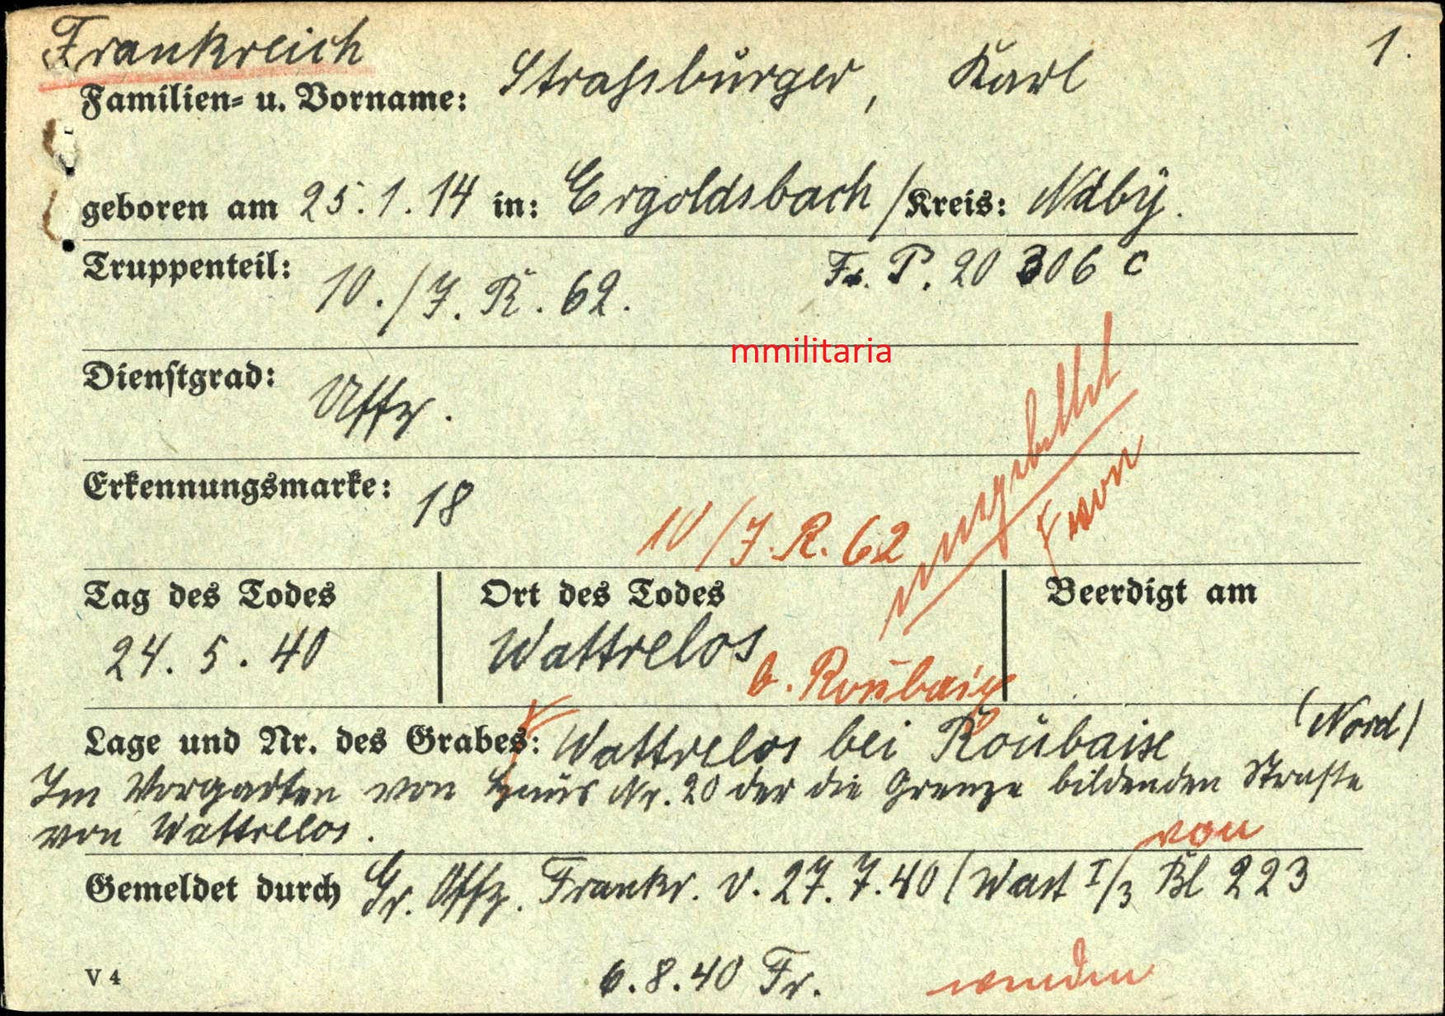 Frankreich
1.
Familien= u. Vorname: Straßburger, Karl
geboren am 25.1.14 in: Ergoldsbach /Kreis: Ndby.
Truppenteil: 10./J.R. 62. Fr. P. 20 306 C
mmilitaria
Dienstgrad: Uffz.
Erkennungsmarke: 18
10/J.R. 62
Tag des Todes Ort des Todes Beerdigt am
24. 5. 40 Wattrelos
b. Roubaix
Lage und Nr. des Grabes: Wattrelos bei Roubaix (Nord)
Im Vorgarten von Haus Nr. 20 der die Grenze bildenden Straße
von Wattrelos.
von
Gemeldet durch Gr. Offz. Frankr. v. 27.7.40 (Wast I/3 Bl 223
V 4
6.8.40 Fr.
wenden